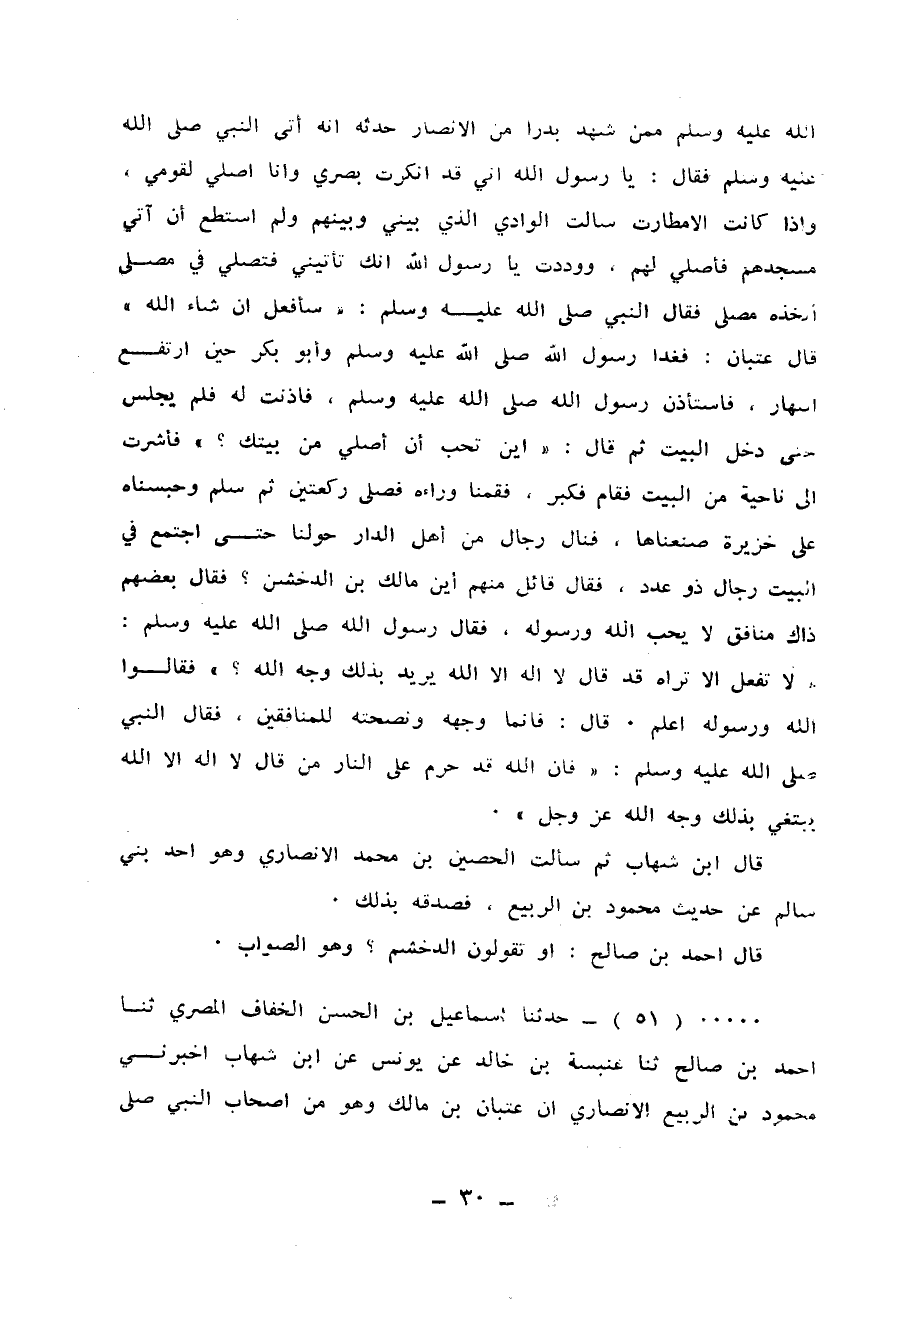 الله عليه وسلم ممن شهد بدرا من الانصار حدثه انه أتى النبي صلى الله
عليه وسلم فقال : يا رسول الله اني قد انكرت بصري وانا اصلي لقومي ،
واذا كانت الامطارت سالت الوادي الذي بيني وبينهم ولم استطع أن آتي
مسجدهم فأصلي لهم ، ووددت يا رسول الله انك تأتيني فتصلي في مصلى
أتخذه مصلى فقال النبي صلى الله عليه وسلم : « سأفعل ان شاء الله »
قال عتبان : فغدا رسول الله صلى الله عليه وسلم وأبو بكر حين ارتفع
النهار ، فاستأذن رسول الله صلى الله عليه وسلم ، فاذنت له فلم يجلس
حتى دخل البيت ثم قال : « اين تحب أن أصلي من بيتك ؟ » فأشرت
الى ناحية من البيت فقام فكبر ، فقمنا وراءه فصلى ركعتين ثم سلم وحبسناه
على خزيرة صنعناها ، فنال رجال من أهل الدار حولنا حتى اجتمع في
البيت رجال ذو عدد ، فقال قائل منهم أين مالك بن الدخشن ؟ فقال بعضهم
ذاك منافق لا يحب الله ورسوله ، فقال رسول الله صلى الله عليه وسلم :
« لا تفعل الا تراه قد قال لا اله الا الله يريد بذلك وجه الله ؟ » فقالوا
الله ورسوله اعلم · قال : فانما وجهه ونصحته للمنافقين ، فقال النبي
صلى الله عليه وسلم : « فان الله قد حرم على النار من قال لا اله الا الله
يبتغي بذلك وجه الله عز وجل » ·
قال ابن شهاب ثم سألت الحصين بن محمد الانصاري وهو احد بني
سالم عن حديث محمود بن الربيع ، فصدقه بذلك ·
قال احمد بن صالح : او تقولون الدخشم ؟ وهو الصواب ·
····· ( ٥١ ) ـ حدثنا إسماعيل بن الحسن الخفاف المصري ثنا
احمد بن صالح ثنا عنبسة بن خالد عن يونس عن ابن شهاب اخبرني
محمود بن الربيع الانصاري ان عتبان بن مالك وهو من اصحاب النبي صلى
ـ ٣٠ ـ